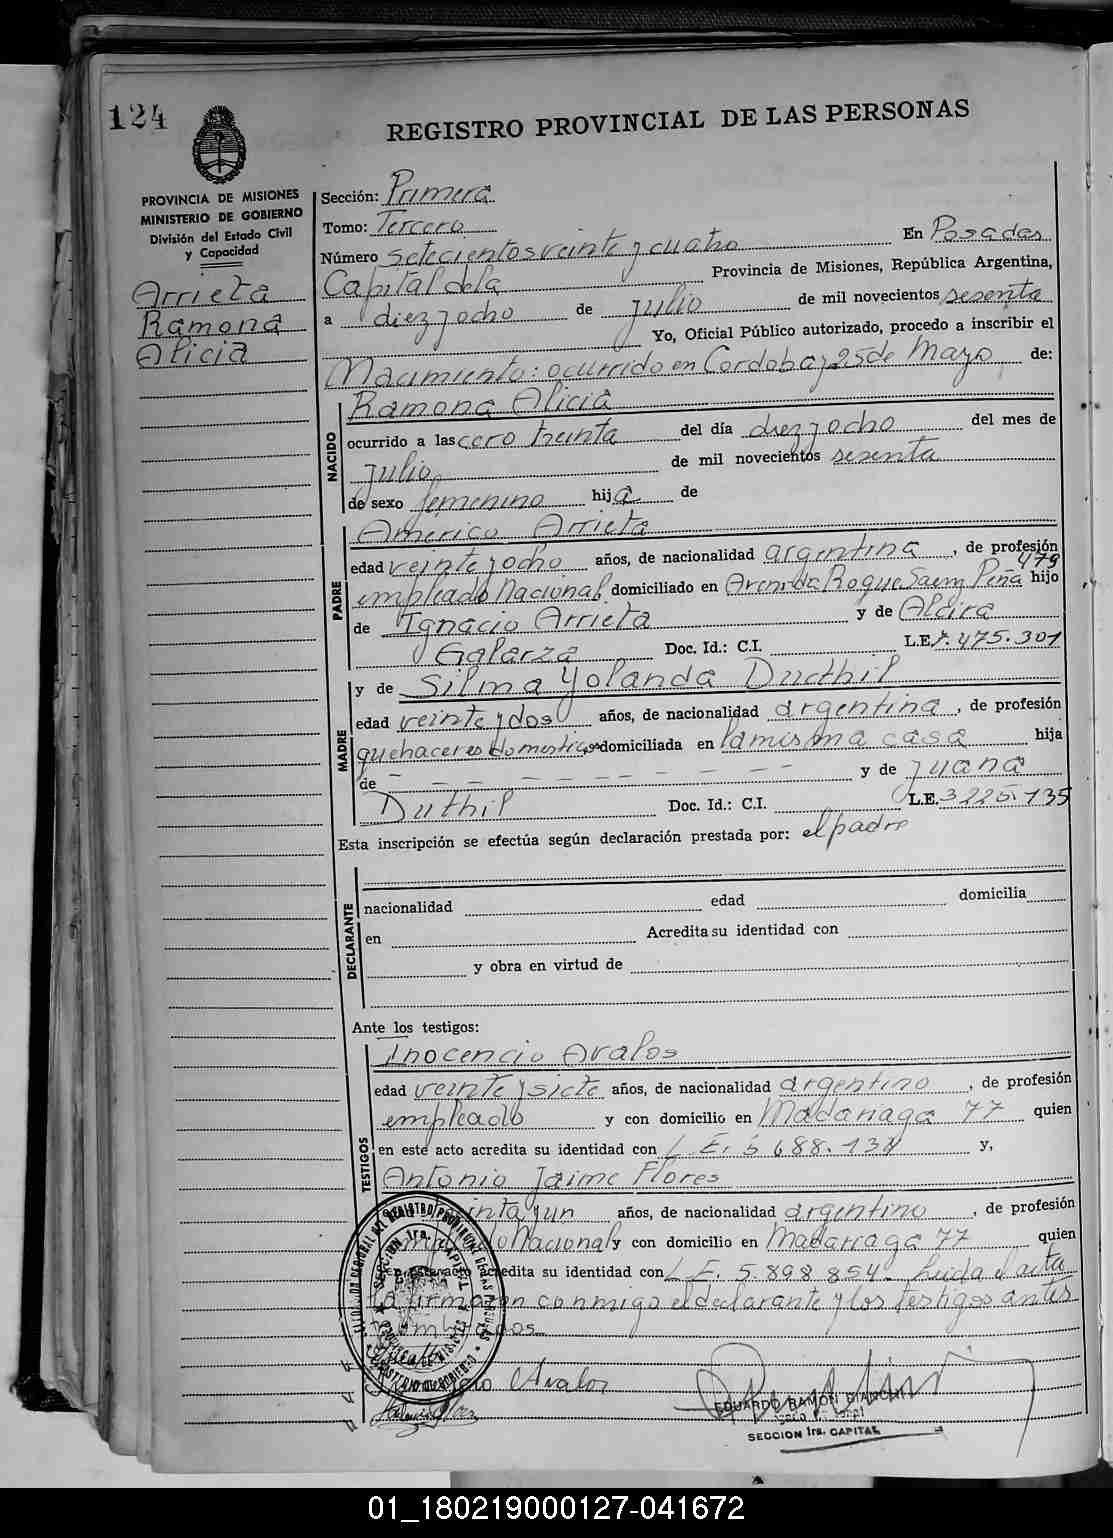 124
REGISTRO PROVINCIAL DE LAS PERSONAS
PROVINCIA DE MISIONES
MINISTERIO DE GOBIERNO
División del Estado Civil
y Capacidad
Arrieta
Ramona
Alicia
Sección: Primera
Tomo: Tercero
Número setecientos veinte y cuatro En Posadas
Capital de la Provincia de Misiones, República Argentina,
a diez y ocho de julio de mil novecientos sesenta
Yo, Oficial Público autorizado, procedo a inscribir el
Nacimiento: ocurrido en Cordoba y 25 de Mayo de:
NACIDO
Ramona Alicia
ocurrido a las cero treinta del día diez y ocho del mes de
julio de mil novecientos sesenta
de sexo femenino hija de
PADRE
Américo Arrieta
edad veinte y ocho años, de nacionalidad argentina, de profesión
empleado Nacional domiciliado en Avenida Roque Saenz Peña 479 hijo
de Ignacio Arrieta y de Alcira
Galarza Doc. Id.: C.I. L.E. 7.475.301
MADRE
y de Silma Yolanda Duthil
edad veinte y dos años, de nacionalidad argentina, de profesión
quehaceres domesticos domiciliada en la misma casa hija
de - - - - - - - - - y de Juana
Duthil Doc. Id.: C.I. L.E. 3225.135
Esta inscripción se efectúa según declaración prestada por: el padre
DECLARANTE
nacionalidad edad domicilia
en Acredita su identidad con
y obra en virtud de
Ante los testigos:
TESTIGOS
Inocencio Avalos
edad veinte y siete años, de nacionalidad argentino, de profesión
empleado y con domicilio en Madariaga 77 quien
en este acto acredita su identidad con L.E. 5 688.131 y,
Antonio Jaime Flores
años, de nacionalidad argentino, de profesión
Nacional y con domicilio en Madariaga 77 quien
en este acto acredita su identidad con L.E. 5.898.854. Leida el acta
la firmaron conmigo el declarante y los testigos antes
Avalos
EDUARDO RAMON BIANCHI
SECCION 1ra. CAPITAL
01_180219000127-041672